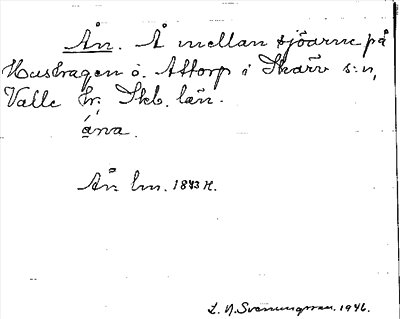 Ån. Å mellan sjöarne på
Hushagen o. Attorp i Skärv s:n,
Valle hr. Skb. län.
ána.
Ån lm. 1843 H.
L. N. Svenungsson. 1946.